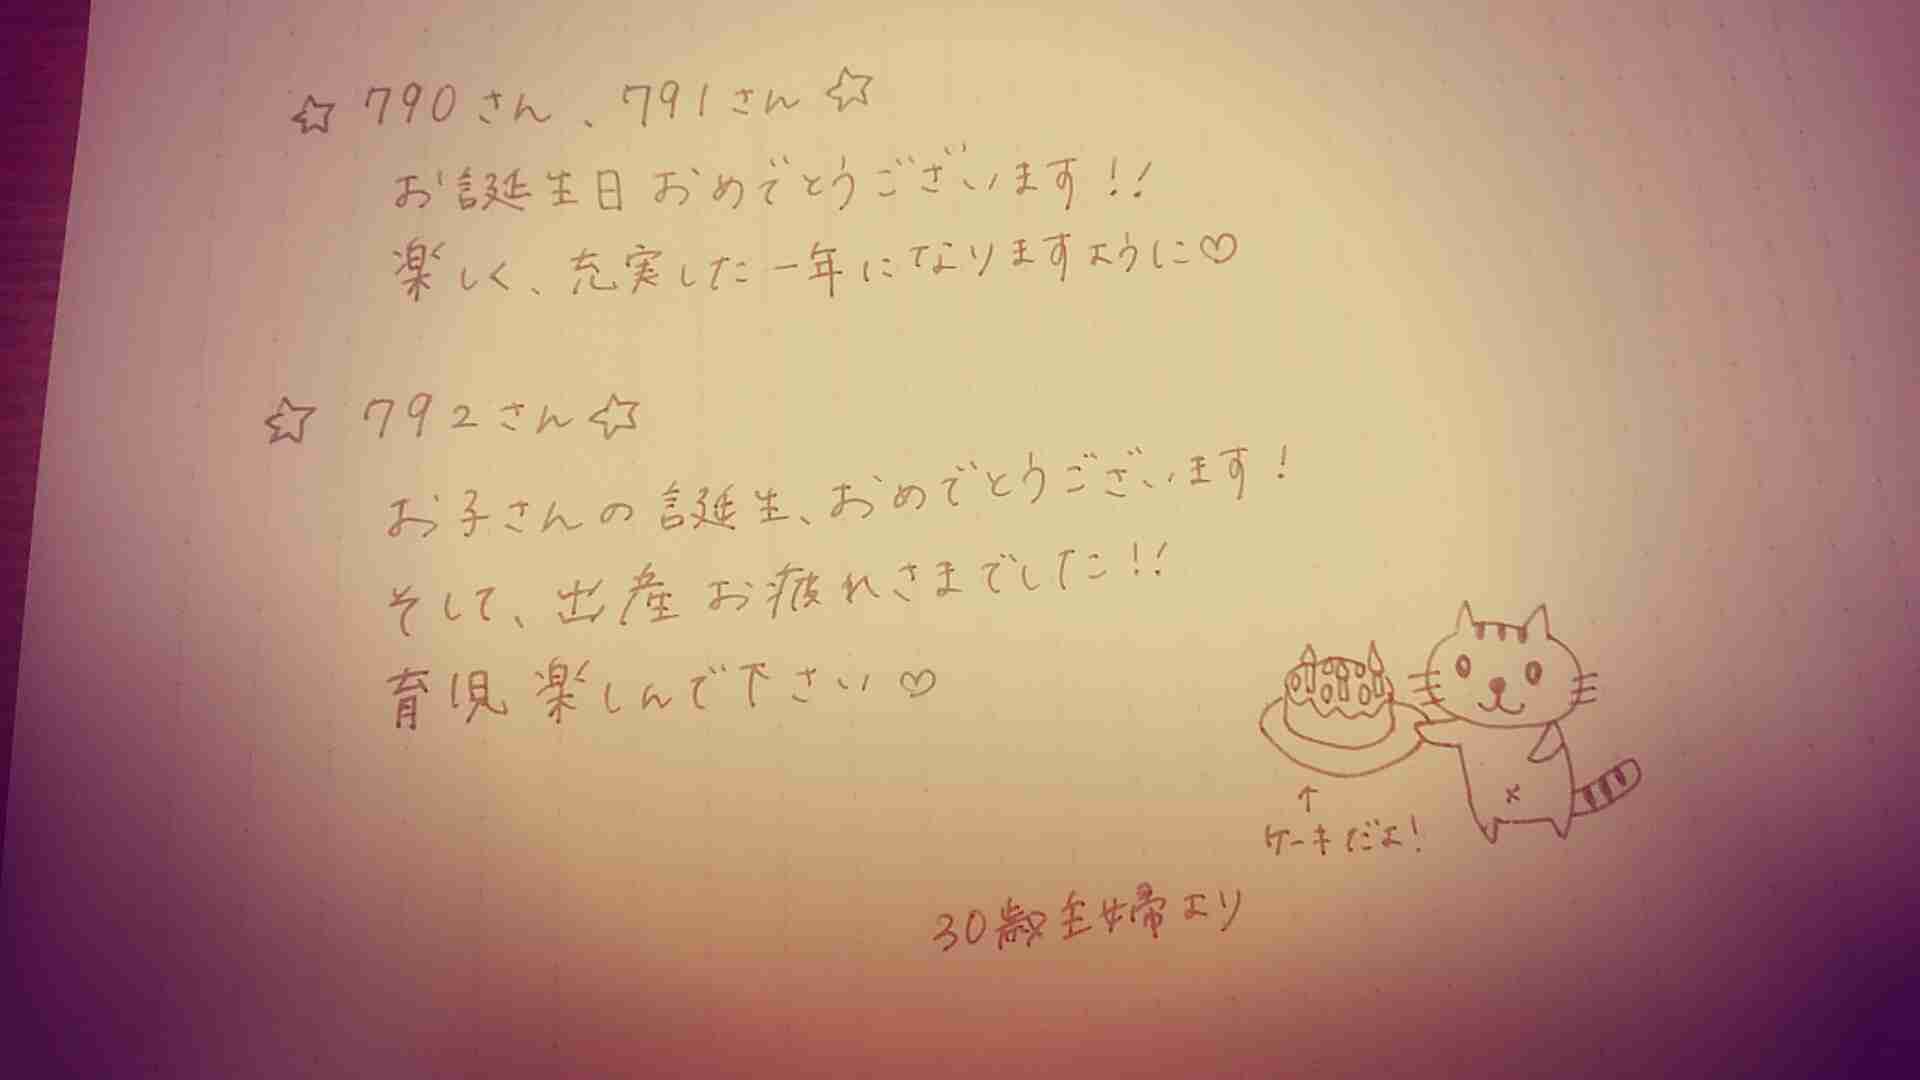 ☆ 790さん、791さん ☆
お誕生日おめでとうございます!!
楽しく、充実した一年になりますように♡
☆ 792さん☆
お子さんの誕生、おめでとうございます!
そして、出産お疲れさまでした!!
育児楽しんで下さい♡
↑
ケーキだよ!
30歳主婦より